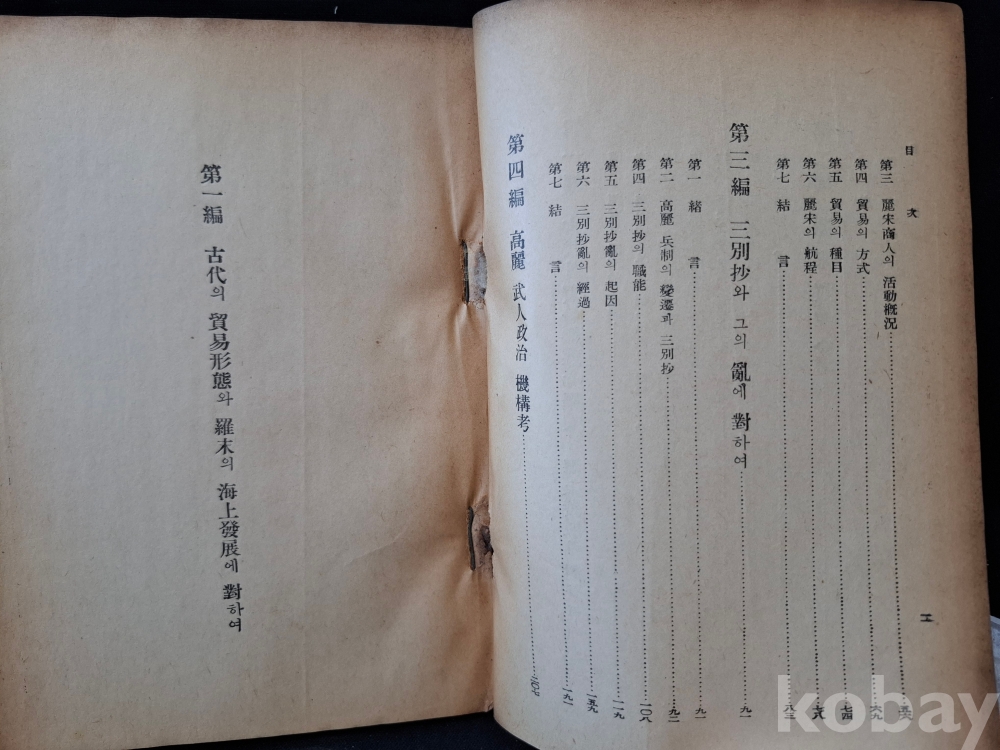 目次
第三 麗宋商人의 活動槪況
第四 貿易의 方式 六九
第五 貿易의 種目 七四
第六 麗宋의 航程 七八
第七 結言 八三
第三編 三別抄와 그의 亂에 對하여 九一
第一 緖言 九一
第二 高麗 兵制의 變遷과 三別抄 九二
第四 三別抄의 職能 一〇八
第五 三別抄亂의 起因 一一九
第六 三別抄亂의 經過 一五九
第七 結言 一九一
第四編 高麗 武人政治 機構考
第一編 古代의 貿易形態와 羅末의 海上發展에 對하여
kobay